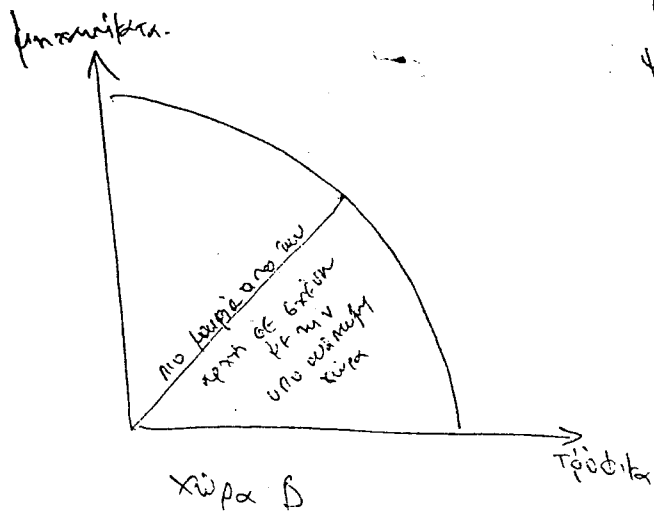 μηχανήματα.
πιο μακριά από την
αρχή σε σχέση
με την
υπο ανάπτυξη
χώρα
τρόφιμα
χώρα Β